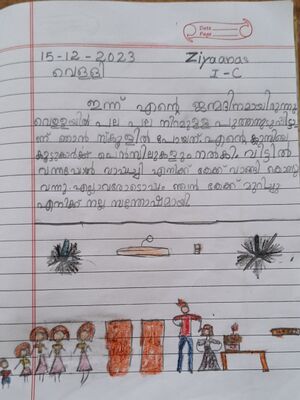 Date
Page
15-12-2023 Ziyaanas
വെള്ളി I-C
ഇന്ന് എന്റെ ജന്മദിനമായിരുന്നു
വെള്ളയിൽ പല പല നിറമുള്ള പുത്തനുടുപ്പിട്ടാ
ണ് ഞാൻ സ്കൂളിൽ പോയത് എന്റെ
കൂട്ടുകാർക്ക് പെൻസിലുകളും നൽകി. വീട്ടിൽ
വന്നപ്പോൾ വാപ്പച്ചി എനിക്ക് കേക്ക് വാങ്ങി കൊണ്ടു
വന്നു. എല്ലാവരോടൊപ്പം ഞാൻ കേക്ക് മുറിച്ചു
എനിക്ക് നല്ല സന്തോഷമായി